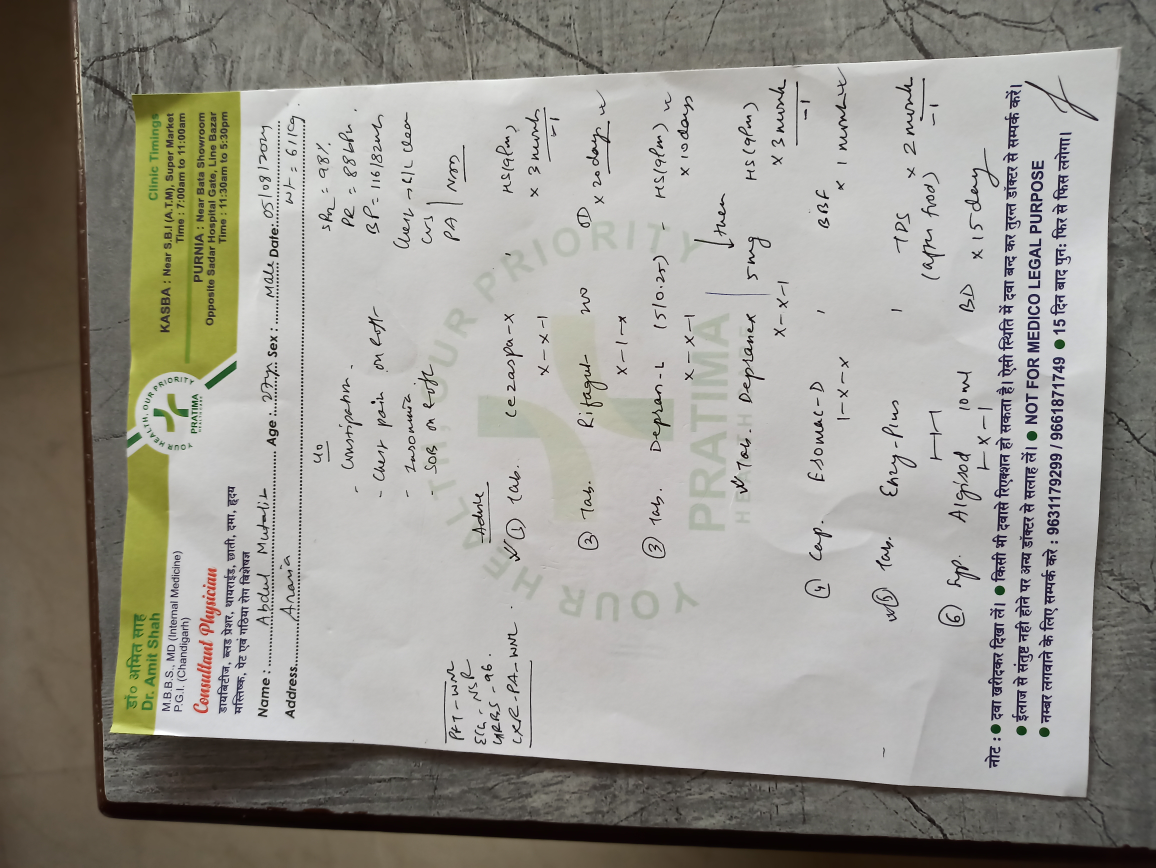 डॉ० अमित साह
Dr. Amit Shah
M.B.B.S., MD (Internal Medicine)
P.G.I. (Chandigarh)
Consultant Physician
डायबिटीज, ब्लड प्रेशर, थायराईड, छाती, दमा, हृदय
मस्तिष्क, पेट एवं गठिया रोग विशेषज्ञ
YOUR HEALTH, OUR PRIORITY
PRATIMA
Clinic Timings
KASBA : Near S.B.I (A.T.M), Super Market
Time : 7:00am to 11:00am
PURNIA : Near Bata Showroom
Opposite Sadar Hospital Gate, Line Bazar
Time : 11:30am to 5:30pm
Name : Abdul Mutalib Age : Sex : Male Date: 05/08/2024
Address Araria Wt = 61kg
C/o
- Constipation.
- Chest pain on & off
- Insomnia
- SOB on & off
PR = 88bpm
BP = 116/82
Chest
CVS
PA
PFT - WNL
ECG - NSR
GRBS - 96.
CXR-PA-WNL
Advice
① Tab. Cezaspa-X HS (9PM)
X-X-1 x 3 month
② Tab. Rifagut x 20 days
X-1-X
③ Tab. Depran-L (5/0.25) - HS (9PM)
X-X-1 x 10 days
then
Tab. Depranex 5mg HS (9PM)
X-X-1 x 3 month
④ Cap. Esomac-D BBF
1-X-X x 1 month
⑤ Tab. Enzy-Plus 1 TDS x 2 month
1-1-1 (after food)
⑥ Syp. Algisod 10ml BD x 15 day
1-X-1
YOUR HEALTH, OUR PRIORITY
PRATIMA
HEALTH
नोट : ● दवा खरीदकर दिखा लें। ● किसी भी दवासे रिएक्शन हो सकता है। ऐसी स्थिति में दवा बन्द कर तुरन्त डॉक्टर से सम्पर्क करें।
● ईलाज से संतुष्ट नही होने पर अन्य डॉक्टर से सलाह लें। ● NOT FOR MEDICO LEGAL PURPOSE
● नम्बर लगवाने के लिए सम्पर्क करे : 9631179299 / 9661871749 ● 15 दिन बाद पुन: फिर से फिस लगेगा।